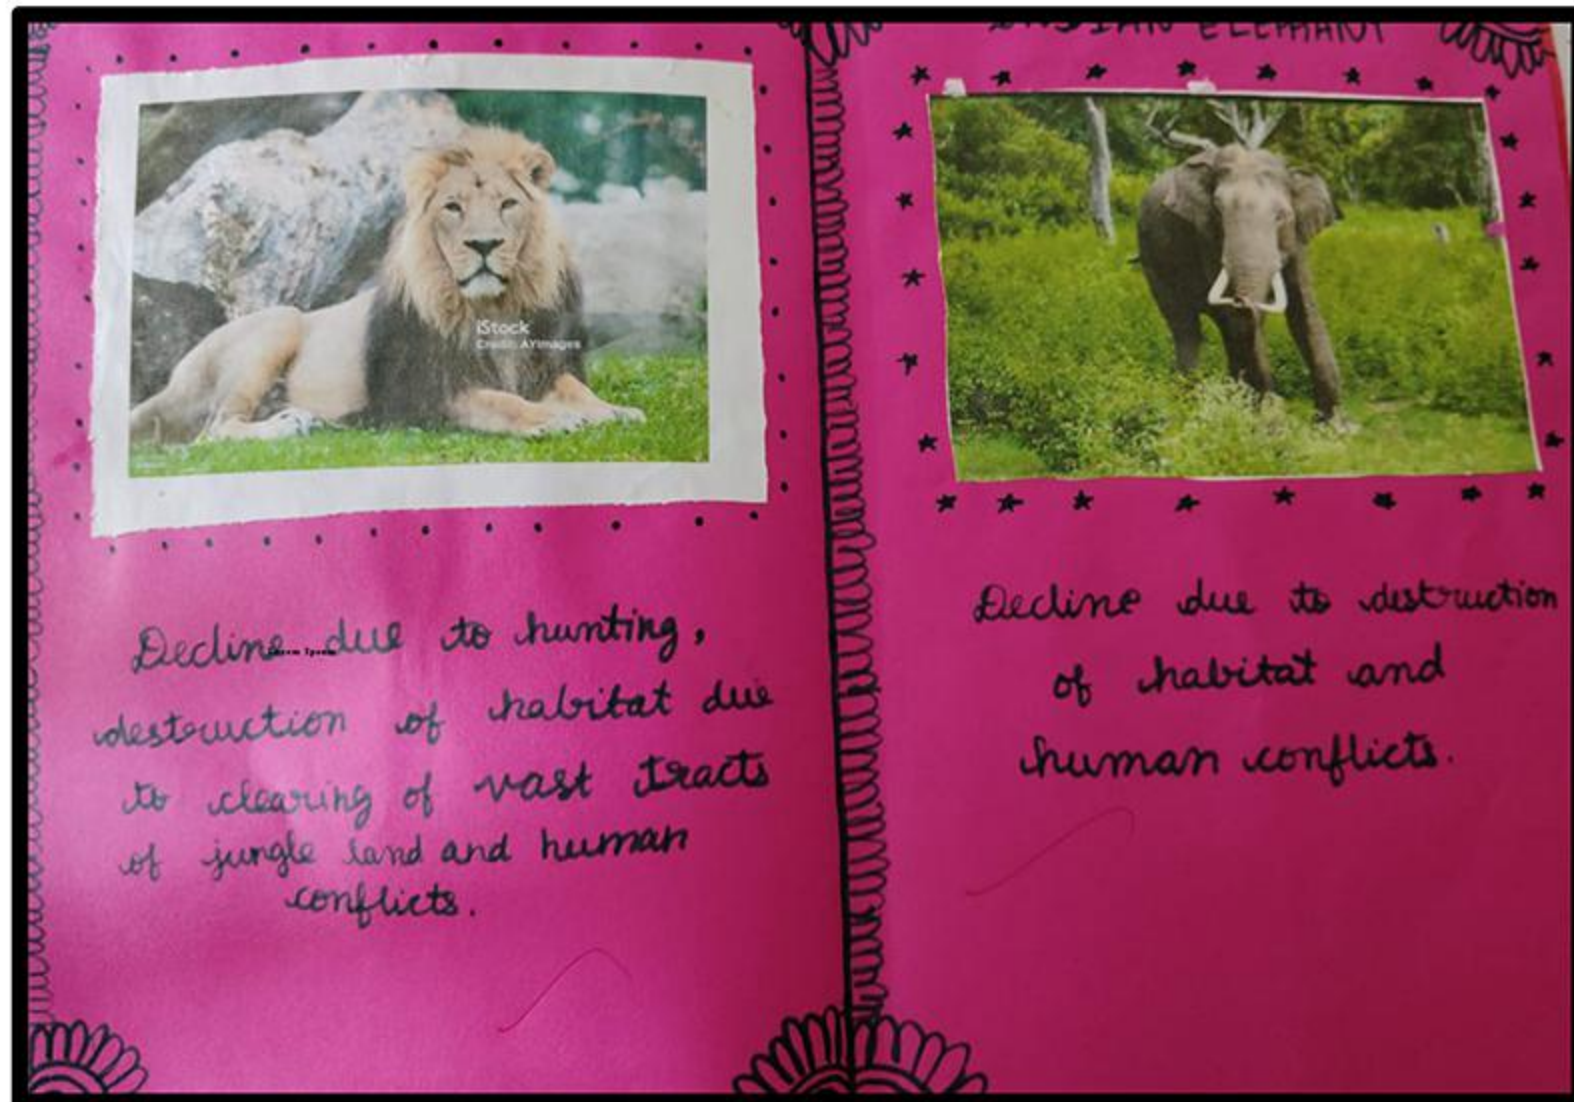 iStock
Credit: AYImages
Decline due to hunting,
Lorem Ipsum
destruction of habitat due
to clearing of vast tracts
of jungle land and human
conflicts.
INDIAN ELEPHANT
Decline due to destruction
of habitat and
human conflicts.